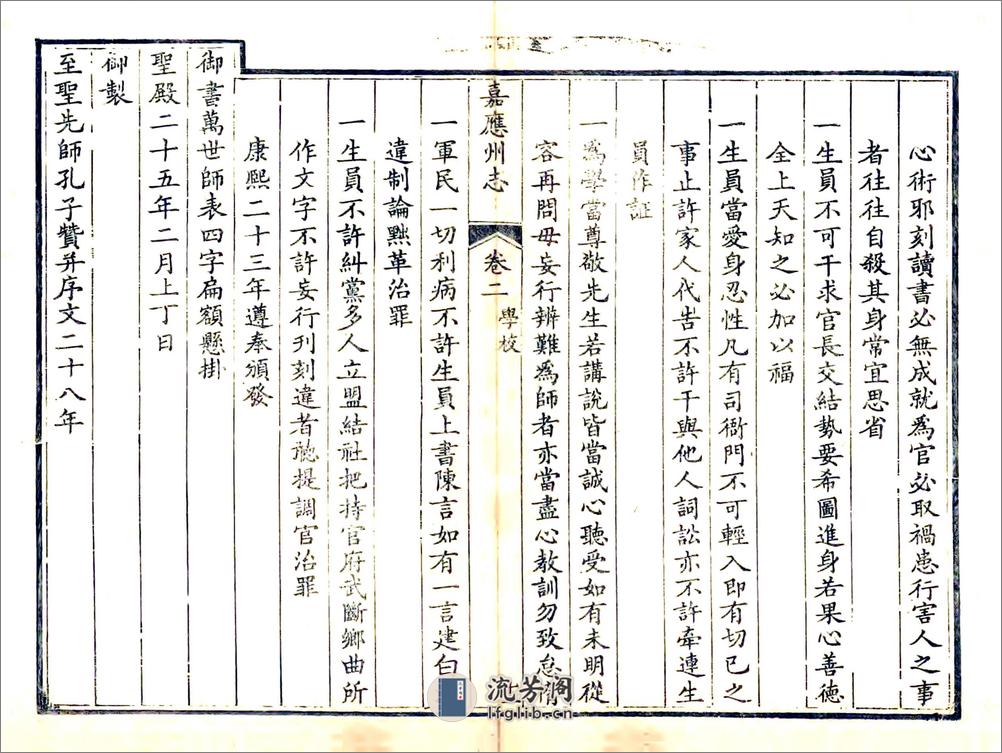 心術邪刻讀書必無成就爲官必取禍患行害人之事
者往往自殺其身常宜思省
一生員不可干求官長交結勢要希圖進身若果心善德
全上天知之必加以福
一生員當愛身忍性凡有司衙門不可輕入即有切已之
事止許家人代告不許干與他人詞訟亦不許牽連生
員作証
一爲學當尊敬先生若講說皆當誠心聽受如有未明從
容再問毋妄行辨難爲師者亦當盡心教訓勿致怠惰
嘉應州志
卷二 學校
一軍民一切利病不許生員上書陳言如有一言建白
違制論黜革治罪
一生員不許糾黨多人立盟結社把持官府武斷鄉曲所
作文字不許妄行刊刻違者聽提調官治罪
康熙二十三年遵奉頒發
御書萬世師表四字扁額懸掛
聖殿二十五年二月上丁日
御製
至聖先師孔子贊并序文二十八年
流芳閣
lfglib.cn